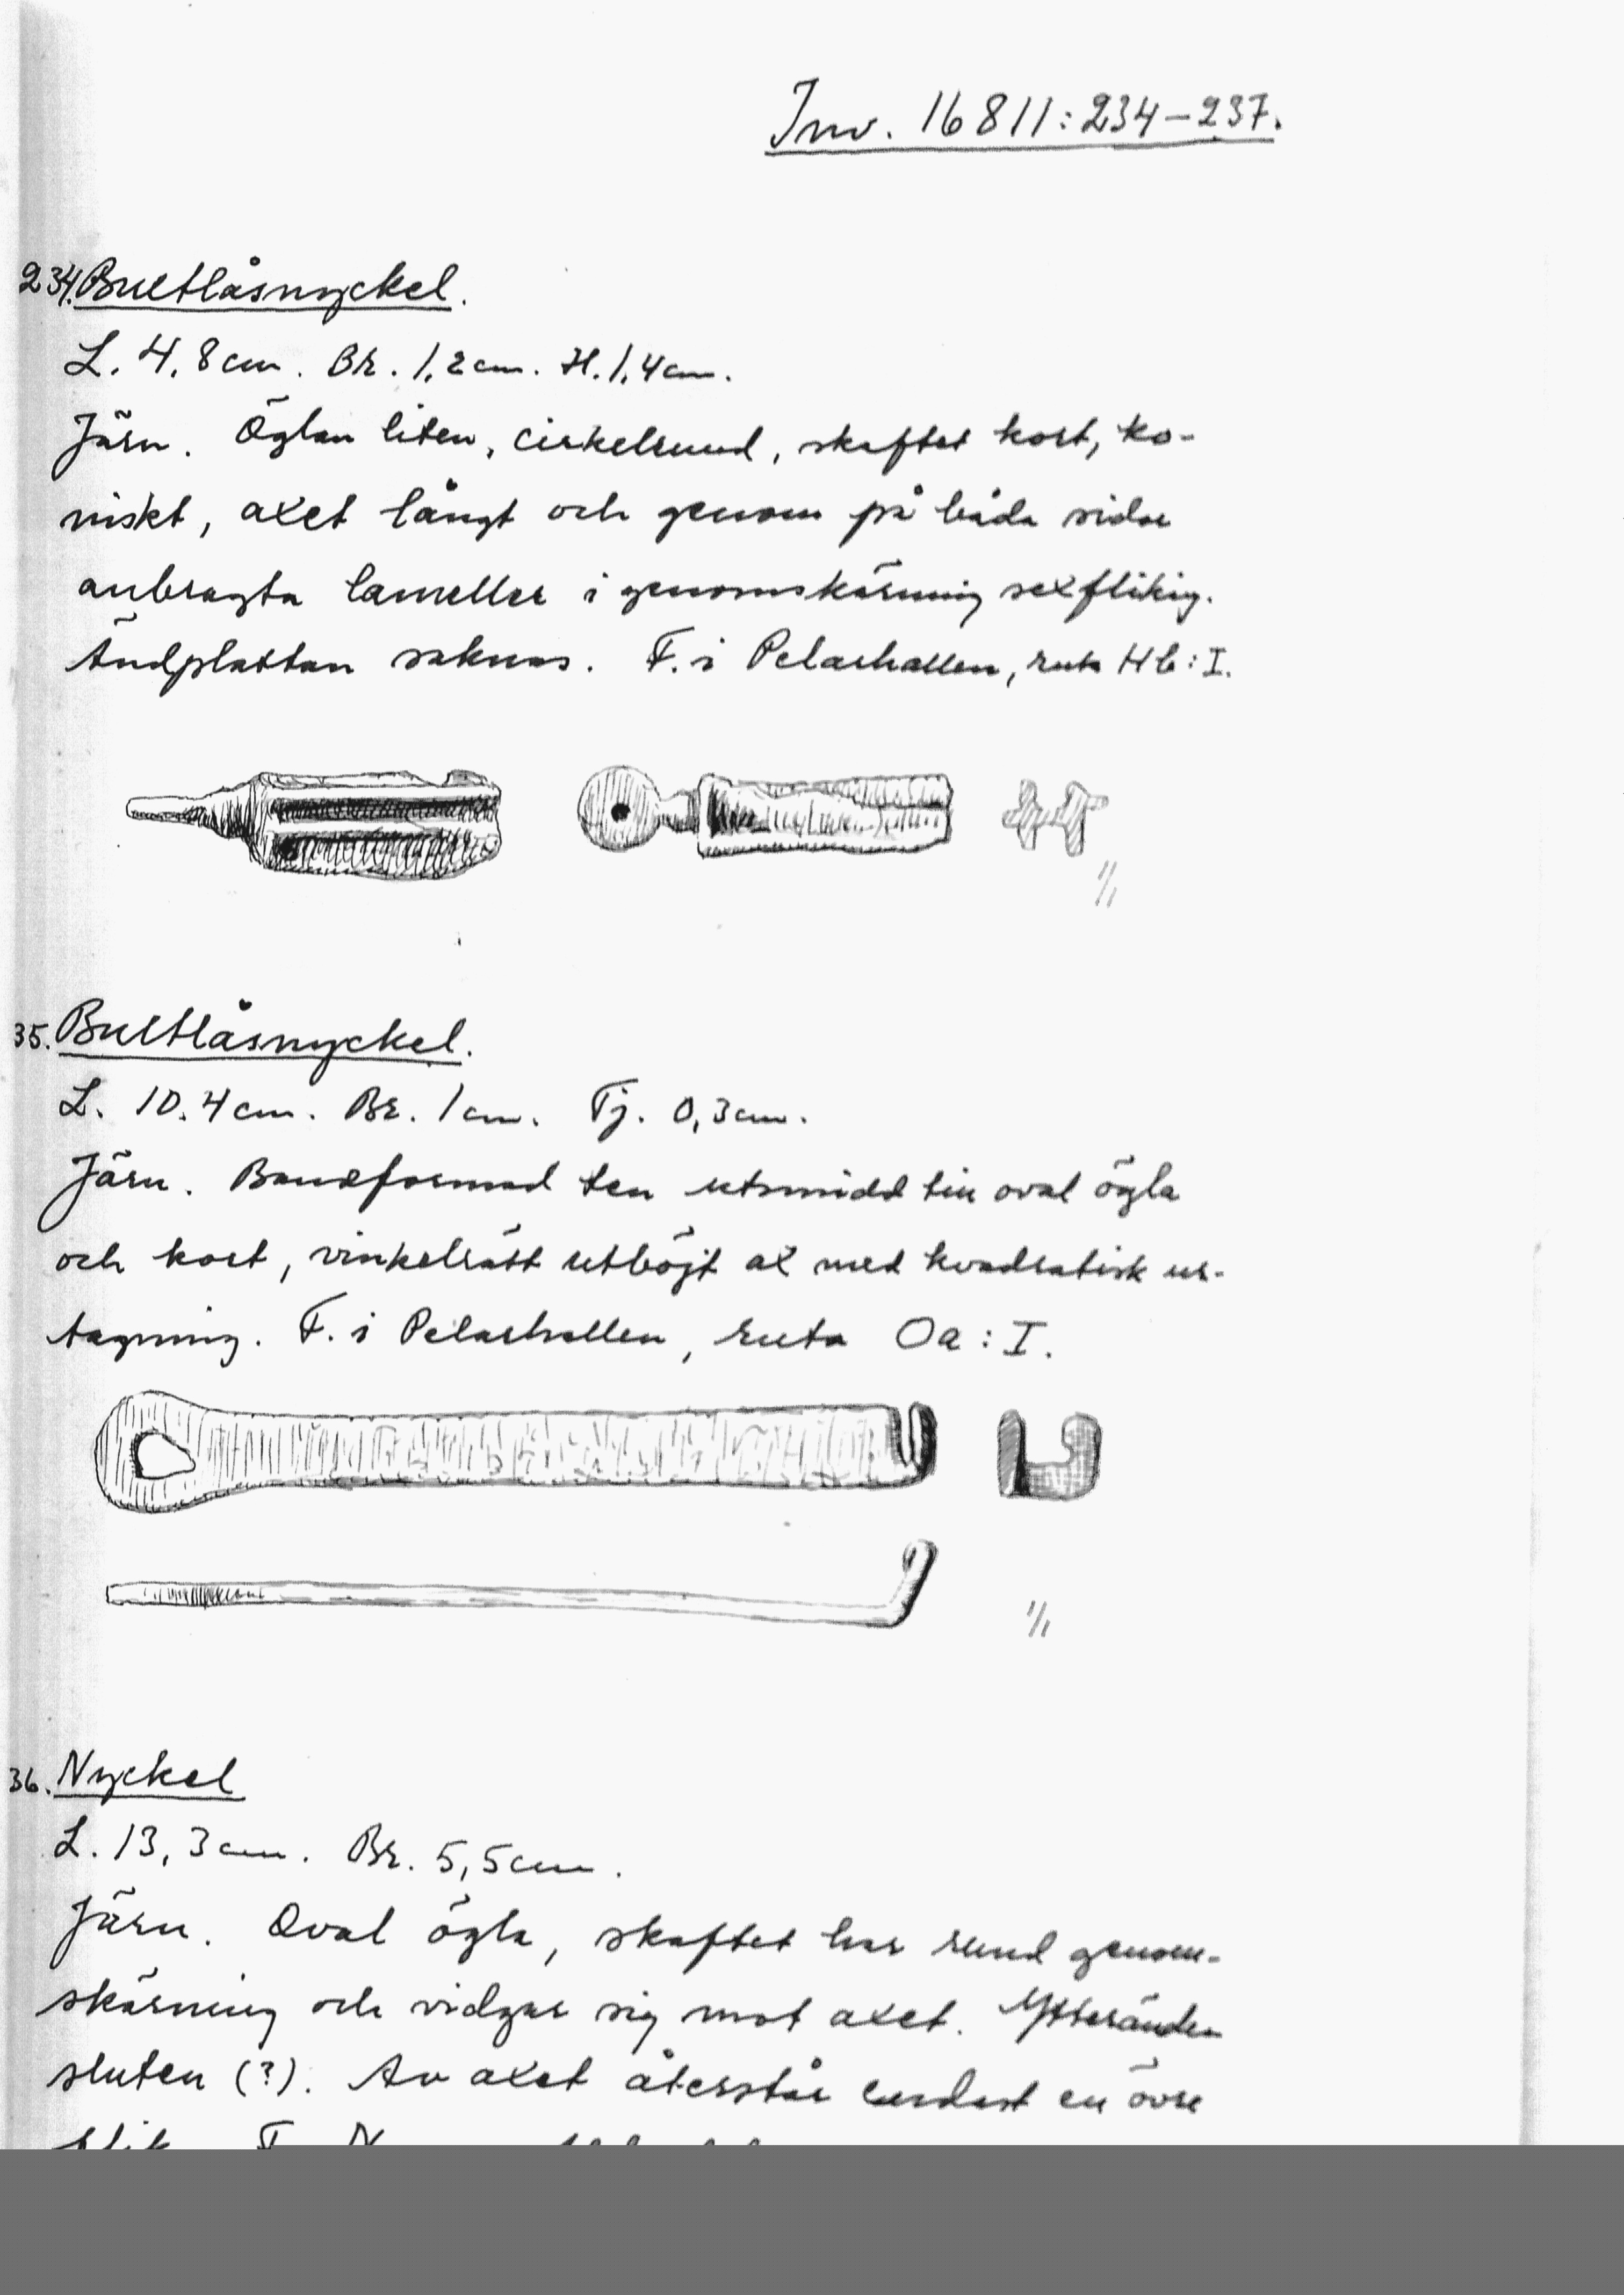 Inv. 16811:234–237.
234. Bultlåsnyckel.
L. 4,8cm. Br. 1,2cm. H. 1,4cm.
Järn. Öglan liten, cirkelrund, skaftet kort, ko-
niskt, axet långt och genom på båda sidor
anbragta lameller i genomskärning sexflikig.
Ändplattan saknas. F. i Pelarhallen, ruta Hb:I.
1/1
35. Bultlåsnyckel.
L. 10.4cm. Br. 1cm. Tj. 0,3cm.
Järn. Bandformad ten utsmidd till oval ögla
och kort, vinkelrätt utböjt ax med kvadratisk ur-
tagning. F. i Pelarhallen, ruta Oa:I.
1/1
36. Nyckel
L. 13,3cm. Br. 5,5cm.
Järn. Oval ögla, skaftet har rund genom-
skärning och vidgar sig mot axet. Ytteränden
sluten (?). Av axet återstår endast en övre